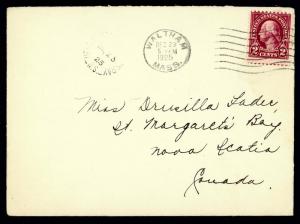 WALTHAM
DEC 23
5 PM
1925
MASS.
2 CENTS 2
Miss Drusilla Lader,
St. Margaret's Bay.
Nova Scotia
Canada.